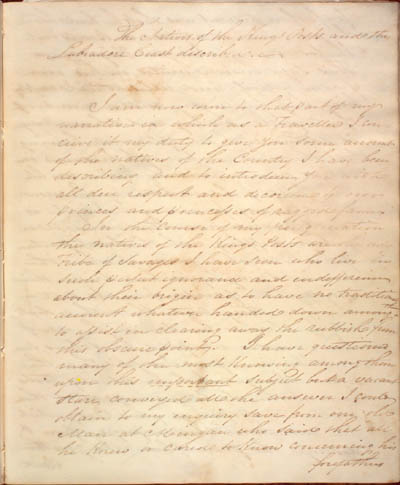 The Natives of the Kings Posts and the
Labradore Coast described.
I am now come to that part of my
narrative in which as a Traveller I con
ceive it my duty to give you some account
of the natives of the Country I have been
describing and to introduce you with
all due respect and decorum to
princes and princesses of
In the Course of my peregrination
the natives of the Kings Posts are the only
Tribe of Savages I have seen who live in
such perfect ignorance and indifference
about their origin as to have no tradition
account whatever handed down among
to assist in clearing away the rubbish from
this obscure point. I have questioned
many of the most knowing among them
upon this important subject but a vacant
stare conveyed all the answer I could
obtain to my enquiry save from one old
Man at Mingan who said that all
he knew or cared to know concerning his
forefathers